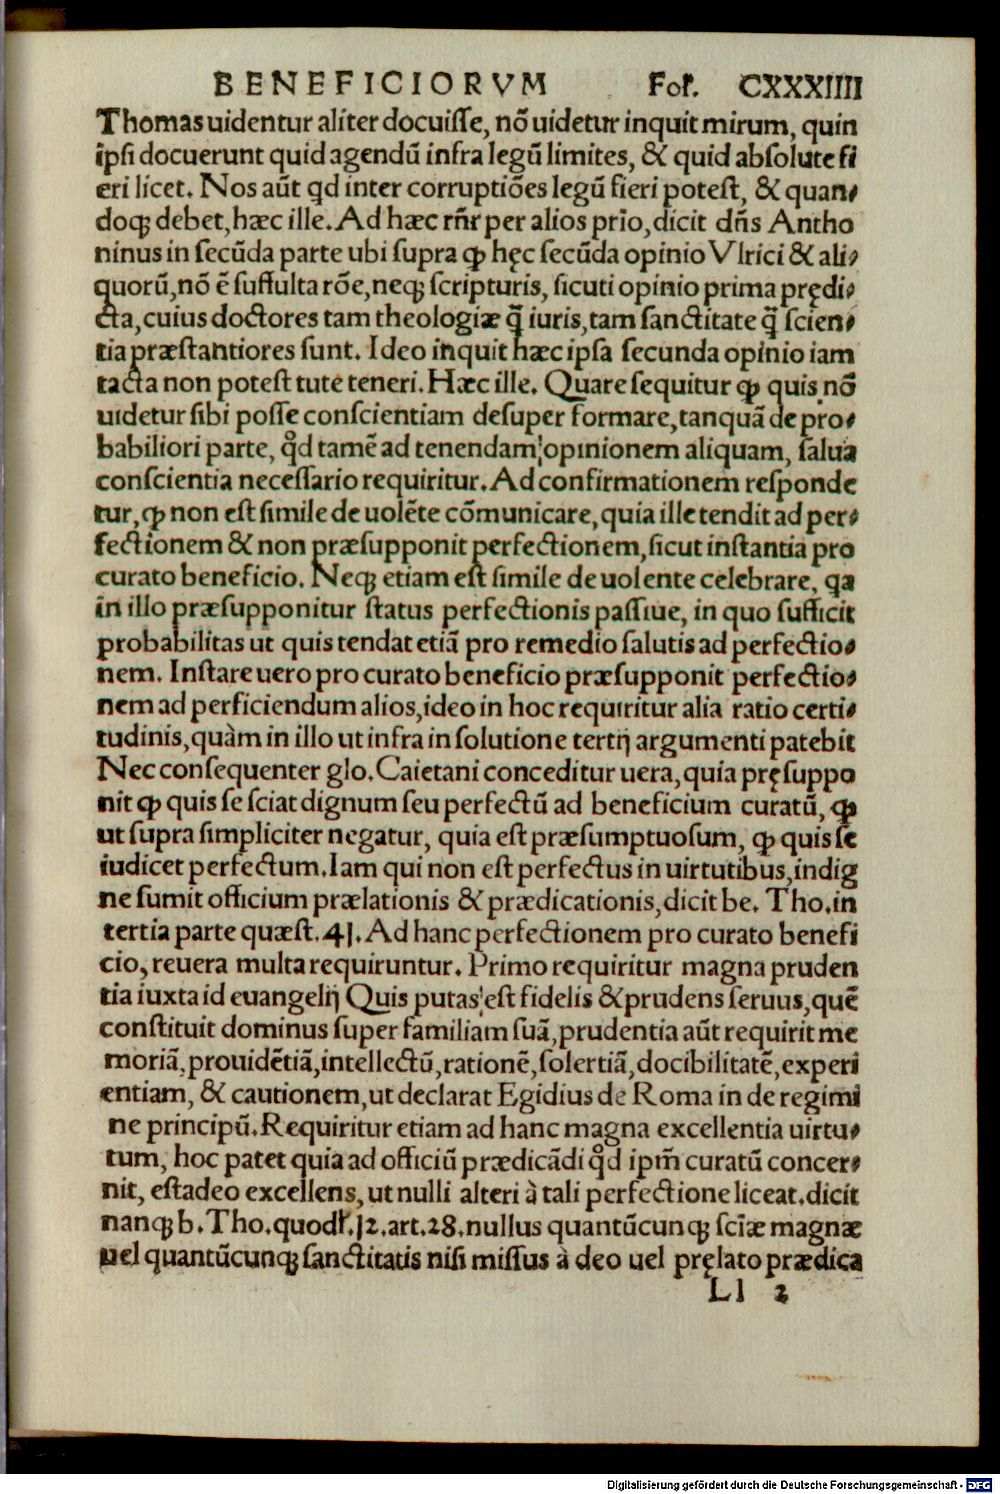 BENEFICIORVM Fol. CXXXIIII
Thomas uidentur aliter docuiſſe, nõ uidetur inquit mirum, quin
ipſi docuerunt quid agendũ infra legũ limites, & quid abſolute fi
eri licet. Nos aũt qd inter corruptiões legũ fieri poteſt, & quan⸗
doqꝫ debet, hæc ille. Ad hæc rñr per alios prĩo, dicit dñs Antho
ninus in ſecũda parte ubi ſupra ꝙ hęc ſecũda opinio Vlrici & ali⸗
quorũ, nõ ẽ ſuffulta rõe, neqꝫ ſcripturis, ſicuti opinio prima prędi⸗
cta, cuius doctores tam theologiæ q̃ iuris, tam ſanctitate q̃ ſcien⸗
tia præſtantiores ſunt. Ideo inquit hæc ipſa ſecunda opinio iam
tacta non poteſt tute teneri. Hæc ille. Quare ſequitur ꝙ quis nõ
uidetur ſibi poſſe conſcientiam deſuper formare, tanquã de pro⸗
babiliori parte, qd̓ tamẽ ad tenendam opinionem aliquam, ſalua
conſcientia neceſſario requiritur. Ad confirmationem reſponde
tur, ꝙ non eſt ſimile de uolẽte cõmunicare, quia ille tendit ad per⸗
fectionem & non præſupponit perfectionem, ſicut inſtantia pro
curato beneficio. Neqꝫ etiam eſt ſimile de uolente celebrare, qa
in illo præſupponitur ſtatus perfectionis paſſiue, in quo ſufficit
probabilitas ut quis tendat etiã pro remedio ſalutis ad perfectio⸗
nem. Inſtare uero pro curato beneficio præſupponit perfectio⸗
nem ad perficiendum alios, ideo in hoc requiritur alia ratio certi⸗
tudinis, quàm in illo ut infra in ſolutione tertij argumenti patebit
Nec conſequenter glo. Caietani conceditur uera, quia pręſuppo
nit ꝙ quis ſe ſciat dignum ſeu perfectũ ad beneficium curatũ, ꝙ
ut ſupra ſimpliciter negatur, quia eſt præſumptuoſum, ꝙ quis ſe
iudicet perfectum. Iam qui non eſt perfectus in uirtutibus, indig
ne ſumit officium prælationis & prædicationis, dicit be. Tho. in
tertia parte quæſt. 41. Ad hanc perfectionem pro curato benefi
cio, reuera multa requiruntur. Primo requiritur magna pruden
tia iuxta id euangelij Quis putas eſt fidelis & prudens ſeruus, quẽ
conſtituit dominus ſuper familiam ſuã, prudentia aũt requirit me
moriã, prouidẽtiã, intellectũ, rationẽ, ſolertiã, docibilitatẽ, experi
entiam, & cautionem, ut declarat Egidius de Roma in de regimi
ne principũ. Requiritur etiam ad hanc magna excellentia uirtu⸗
tum, hoc patet quia ad officiũ prædicãdi qd̓ ipm̃ curatũ concer⸗
nit, eſt adeo excellens, ut nulli alteri à tali perfectione liceat. dicit
nanqꝫ b. Tho. quodl. 12. art. 28. nullus quantũcunqꝫ ſciæ magnæ
uel quantũcunqꝫ ſanctitatis niſi miſſus à deo uel pręlato prædica
Ll 2
Digitalisierung gefördert durch die Deutsche Forschungsgemeinschaft - DFG